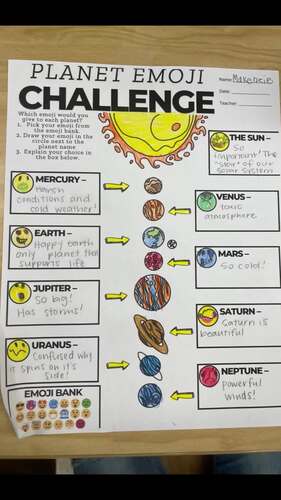 PLANET EMOJI
CHALLENGE
Name: Makenzie
Date:
Teacher:
Which emoji would you
give to each planet?
1. Pick your emoji from
the emoji bank.
2. Draw your emoji in the
circle next to the
planet name
3. Explain your choice in
the box below.
THE SUN -
So
important! The
"star" of our
solar system
MERCURY -
Harsh
conditions and
cold weather!
VENUS -
toxic
atmosphere
EARTH -
Happy earth
only planet that
supports life
MARS -
So cold!
JUPITER -
So big!
Has storms!
SATURN -
Saturn is
beautiful
URANUS -
Confused why
it spins on it's
side!
NEPTUNE -
Powerful
winds!
EMOJI BANK